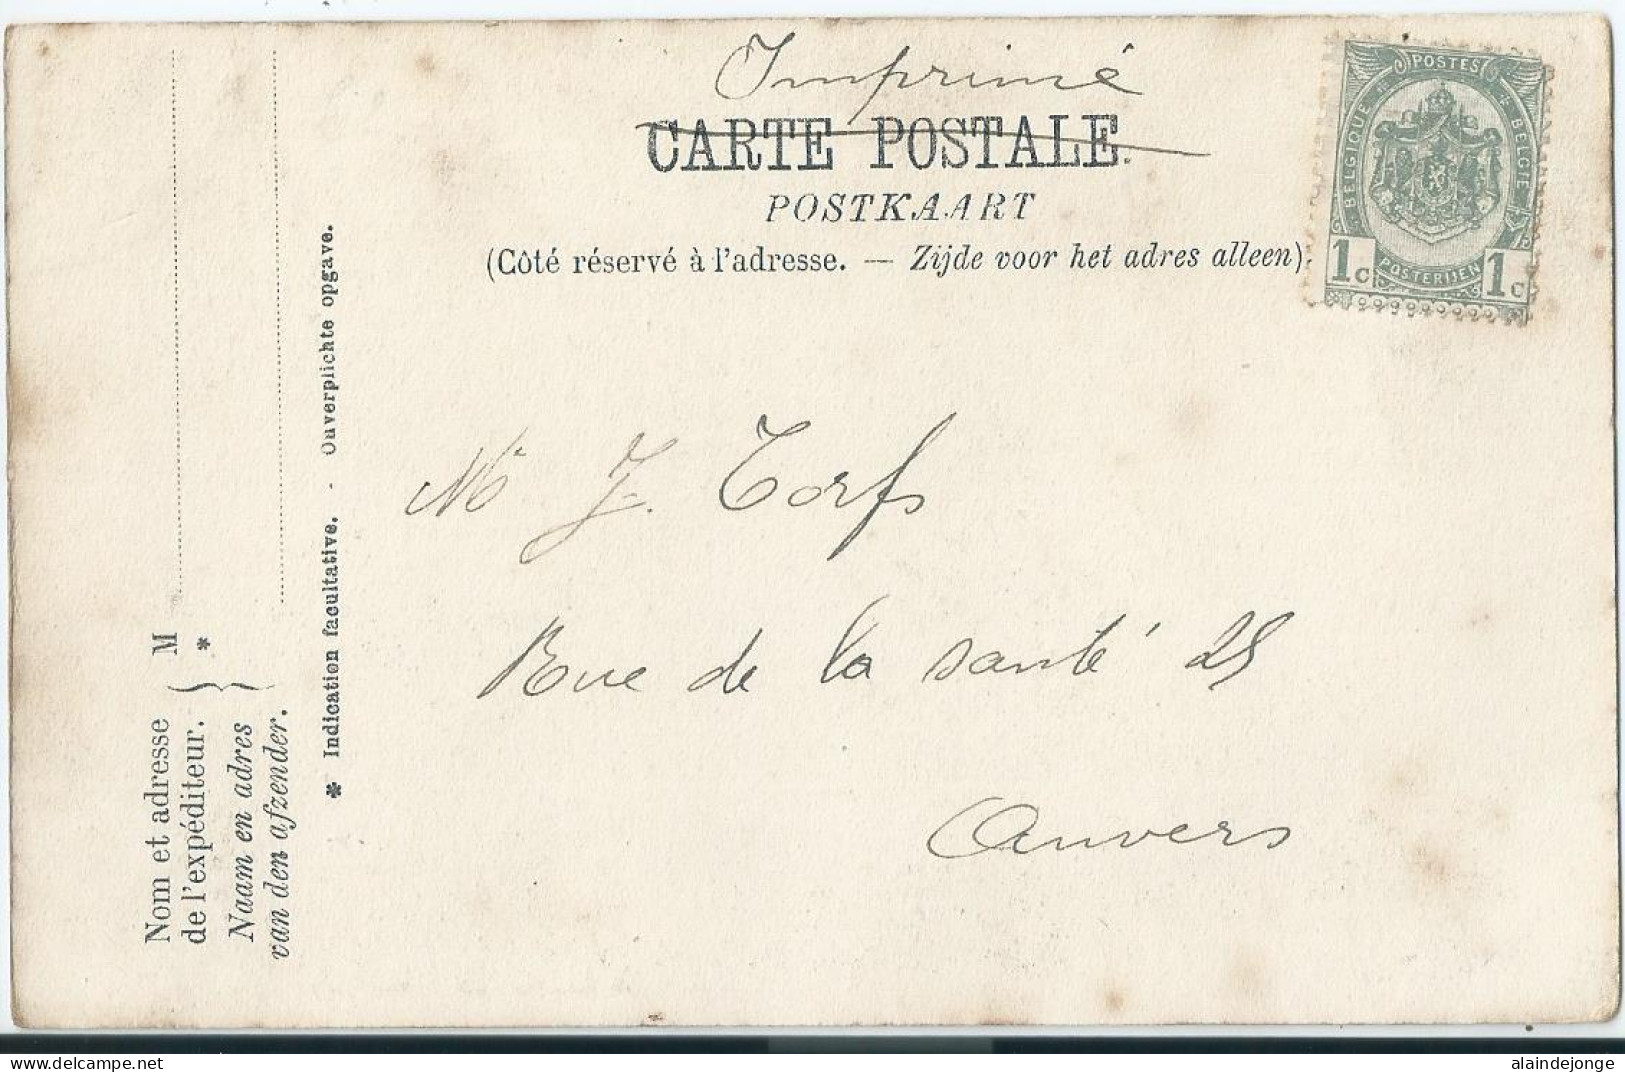 Imprimé
CARTE POSTALE.
POSTKAART
(Côté réservé à l'adresse. — Zijde voor het adres alleen).
POSTES
BELGIQUE
BELGIE
1c POSTERIJEN 1c
Mr J. Torfs
Rue de la santé 25
Anvers
Nom et adresse
de l'expéditeur.
Naam en adres
van den afzender.
M
*
* Indication facultative. - Ouverplichte opgave.
alaindejonge